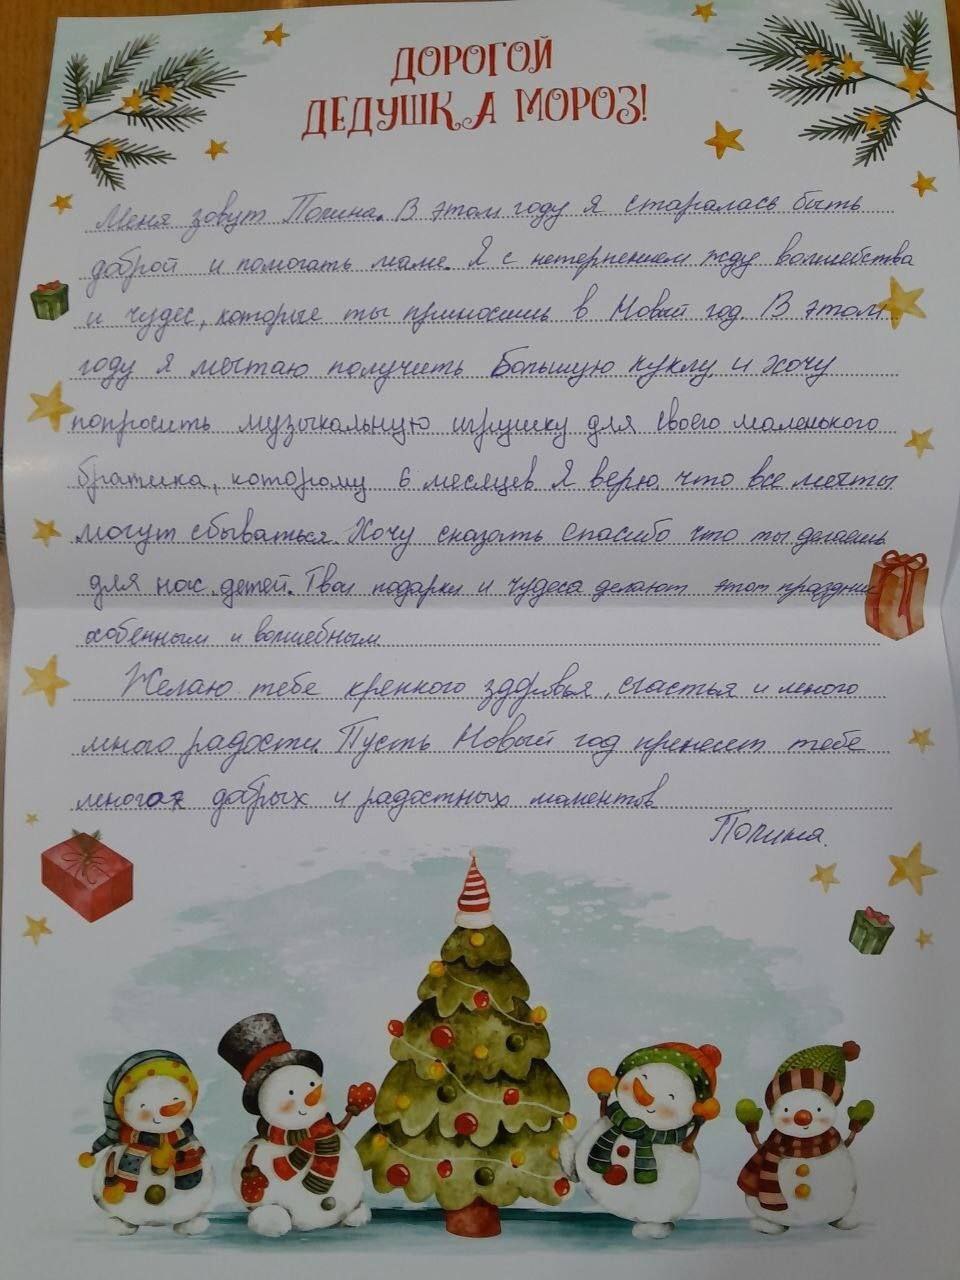 ДОРОГОЙ
ДЕДУШКА МОРОЗ!
Меня зовут Полина. В этом году я старалась быть
доброй и помогать маме. Я с нетерпением жду волшебства
и чудес, которые ты приносишь в Новый год. В этом
году я мечтаю получить большую куклу и хочу
попросить музыкальную игрушку для своего маленького
братика, которому 6 месяцев Я верю что все мечты
могут сбываться. Хочу сказать спасибо что ты делаешь
для нас детей. Твои подарки и чудеса делают этот праздник
особенным и волшебным
Желаю тебе крепкого здоровья, счастья и много
много радости. Пусть Новый год принесет тебе
много добрых и радостных моментов
Полина.